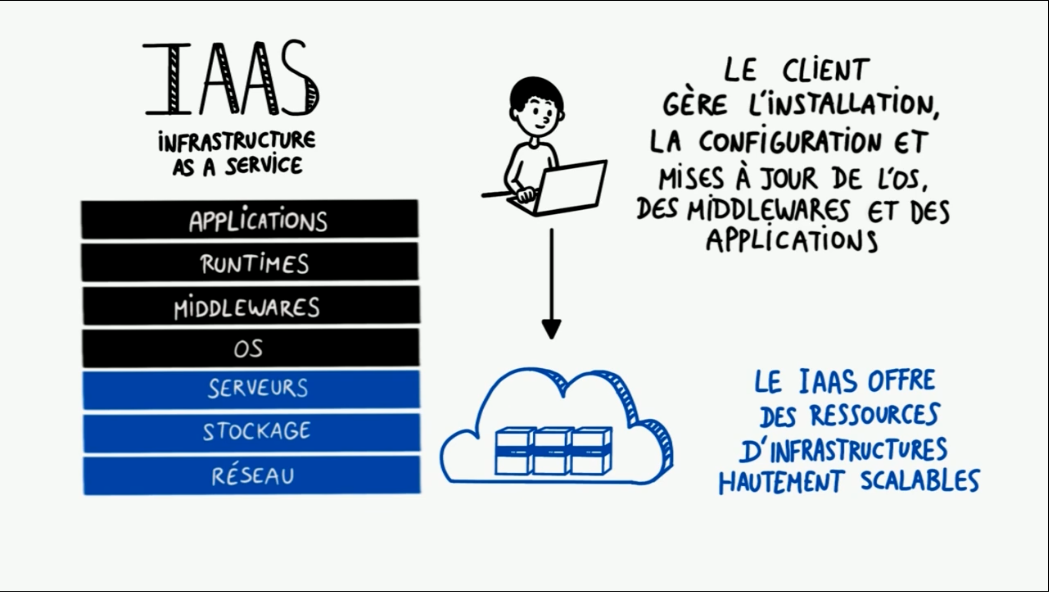 IAAS
INFRASTRUCTURE
AS A SERVICE
APPLICATIONS
RUNTIMES
MIDDLEWARES
OS
SERVEURS
STOCKAGE
RÉSEAU
LE CLIENT
GÈRE L'INSTALLATION,
LA CONFIGURATION ET
MISES À JOUR DE L'OS,
DES MIDDLEWARES ET DES
APPLICATIONS
LE IAAS OFFRE
DES RESSOURCES
D'INFRASTRUCTURES
HAUTEMENT SCALABLES